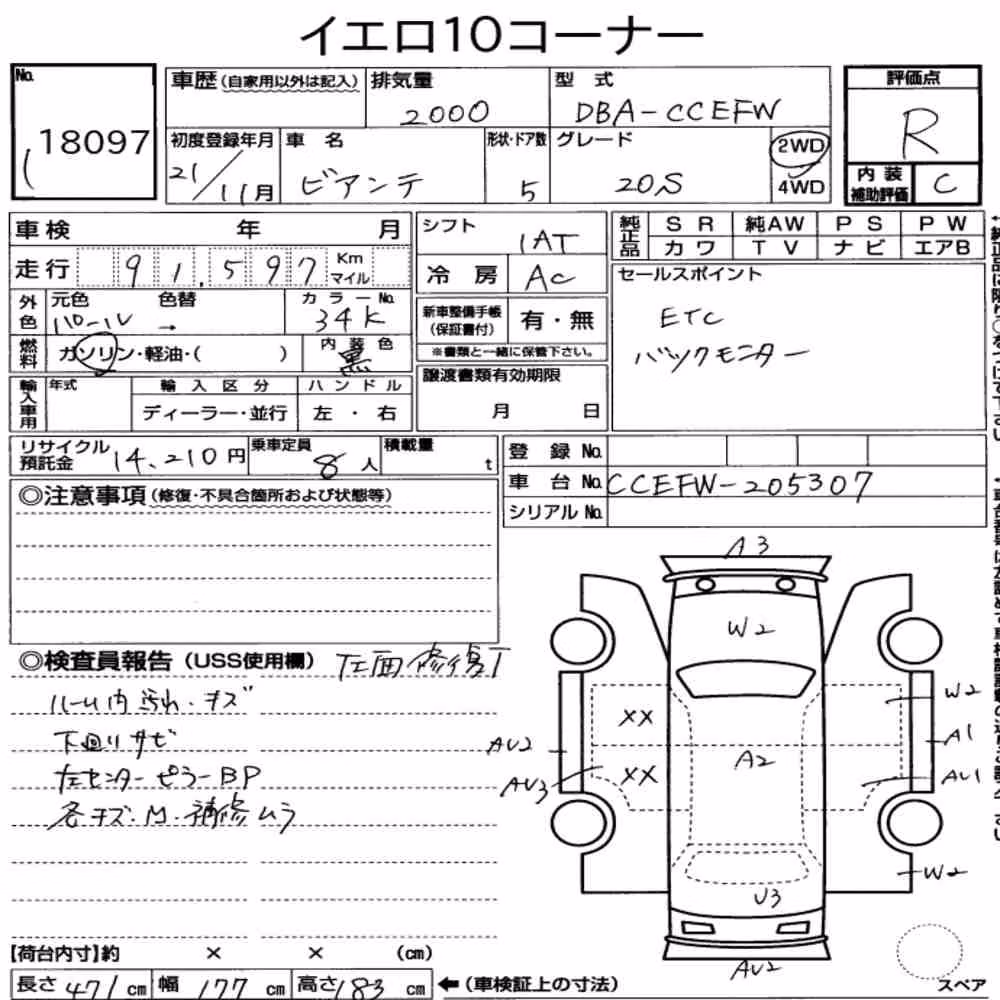 イエロ10コーナー
No.
18097
車歴(自家用以外は記入)
排気量
2000
型式
DBA-CCEFW
評価点
R
初度登録年月
21/11月
車名
ビアンテ
形状・ドア数
5
グレード
20S
2WD
4WD
内装
補助評価
C
車検 年 月
シフト
1AT
純正品
SR 純AW PS PW
カワ TV ナビ エアB
走行 91,597 Km
マイル
冷房
AC
セールスポイント
ETC
バックモニター
外色
元色 色替
パール →
カラーNo.
34K
新車整備手帳
(保証書付)
有・無
※書類と一緒に保管下さい。
燃料
ガソリン・軽油・( )
内装色
黒
輸入車用
年式
輸入区分
ディーラー・並行
ハンドル
左・右
譲渡書類有効期限
月 日
リサイクル
預託金
14,210円
乗車定員
8人
積載量
t
登録No.
車台No. CCEFW-205307
シリアルNo.
◎注意事項(修復・不具合箇所および状態等)
◎検査員報告(USS使用欄) 左面修復T
ルーム内汚れ・キズ
下回りサビ
左センターピラーBP
各キズ・M・補修ムラ
A3
W2
XX
W2
AU2
A1
A2
XX
AU3
AU1
W2
U3
AU2
スペア
【荷台内寸】約 × × (cm)
長さ 471 cm 幅 177 cm 高さ 183 cm ←(車検証上の寸法)